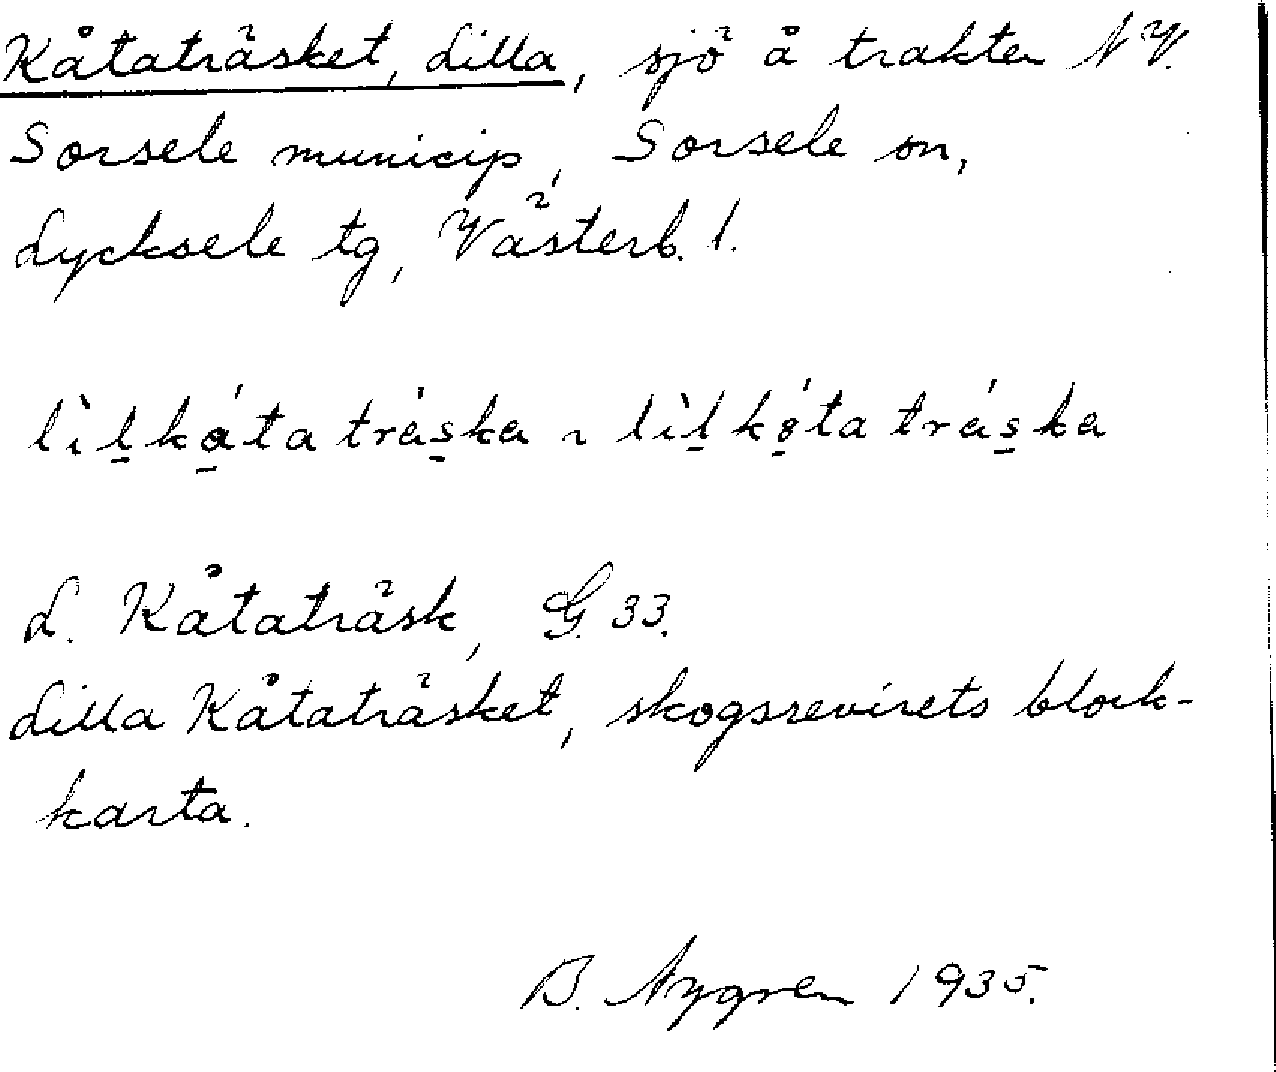 Kåtaträsket, Lilla, sjö å trakten N V.
Sorsele municip, Sorsele sn,
Lycksele tg, Västerb. l.
lìl̠kǻ̠ta trás̠ka ~ lìl̠kǿ̠ta trás̠ka
L. Kåtaträsk, G. 33.
Lilla Kåtaträsket, skogsrevirets block-
karta.
B. Nygren 1935.